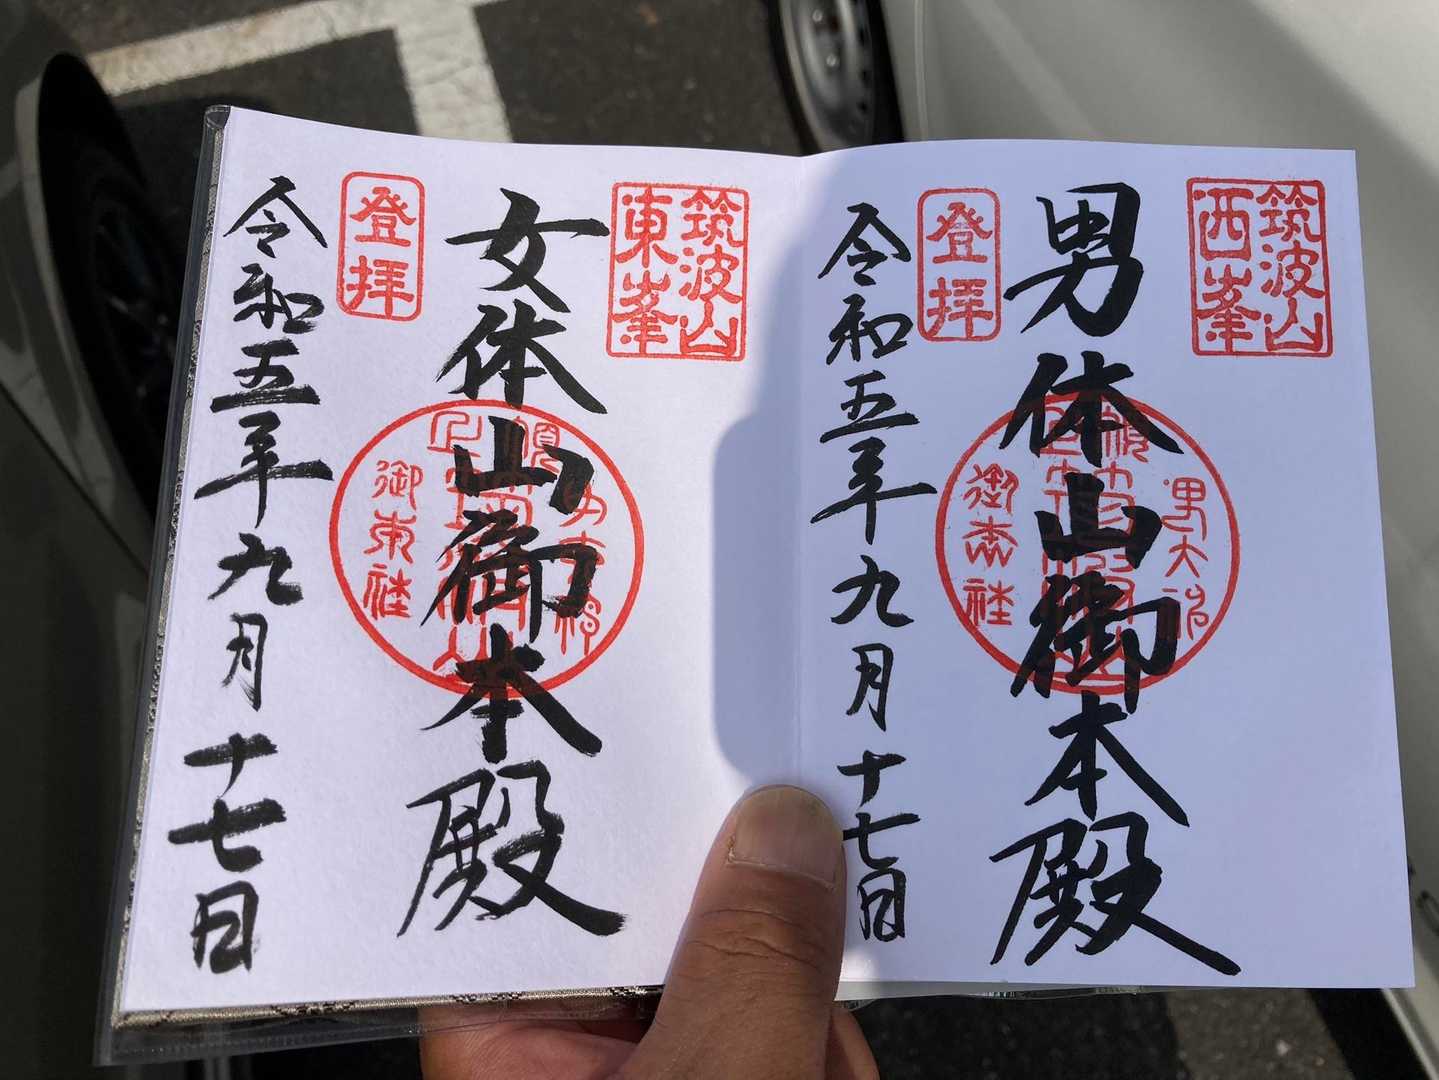 筑波山
西峯
男体山御本殿
登拝
令和五年九月十七日
筑波山
東峯
女体山御本殿
登拝
令和五年九月十七日
御本社